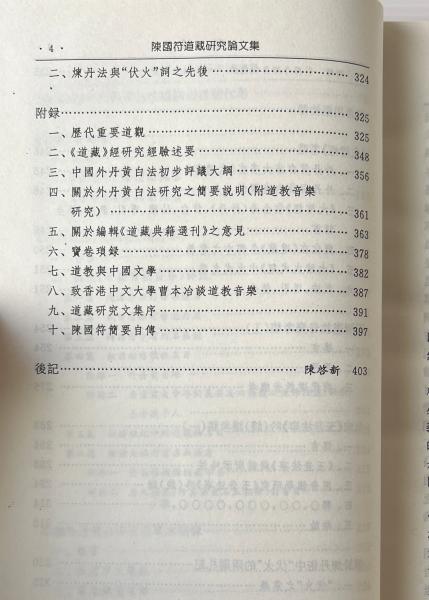 ·4· 陳國符道藏研究論文集
二、煉丹法與“伏火”詞之先後…………………… 324
附録…………………………………………………… 325
一、歷代重要道觀………………………………… 325
二、《道藏》經研究經驗述要……………………… 348
三、中國外丹黃白法初步評議大綱……………… 356
四、關於外丹黃白法研究之簡要説明(附道教音樂
研究)………………………………………… 361
五、關於編輯《道藏典籍選刊》之意見…………… 363
六、寶卷瑣録……………………………………… 378
七、道教與中國文學……………………………… 382
八、致香港中文大學曹本冶談道教音樂………… 387
九、道藏研究文集序……………………………… 391
十、陳國符簡要自傳……………………………… 397
後記……………………………………… 陳啓新 403